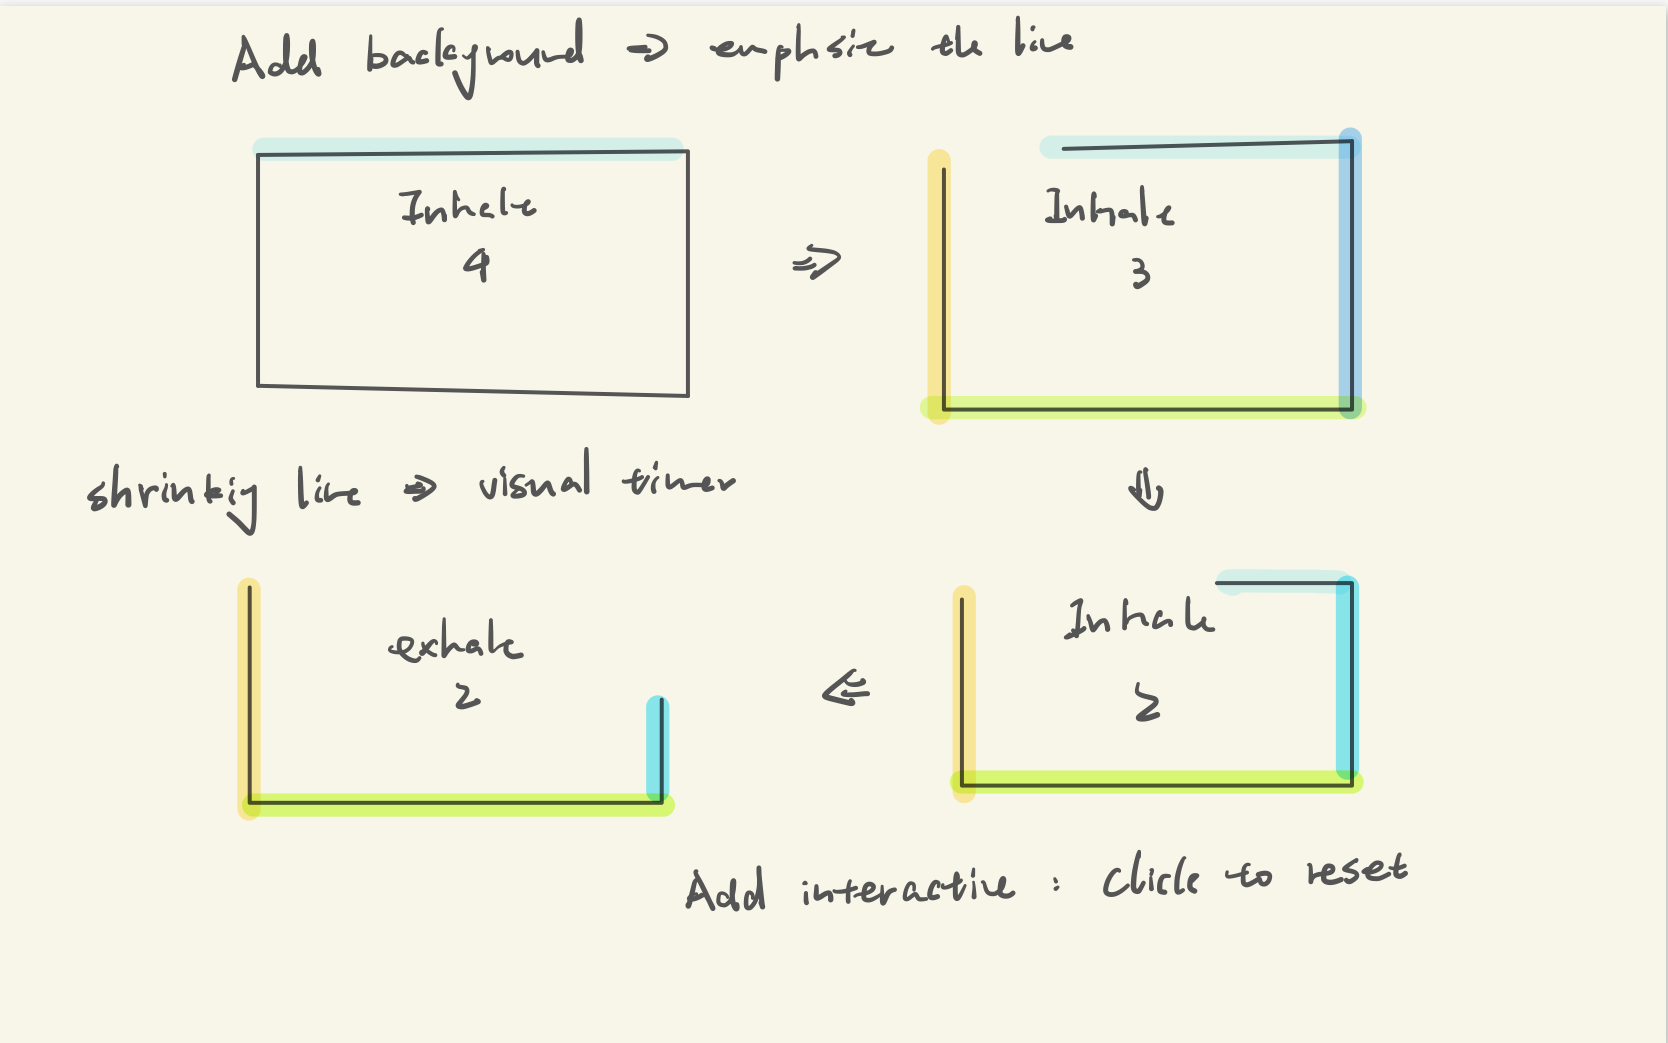 Add background ⇒ emphsize the line
Inhale
4
⇒
Inhale
3
shrinkig line ⇒ visual timer
⇓
exhale
2
⇐
Inhale
2
Add interactive : click to reset